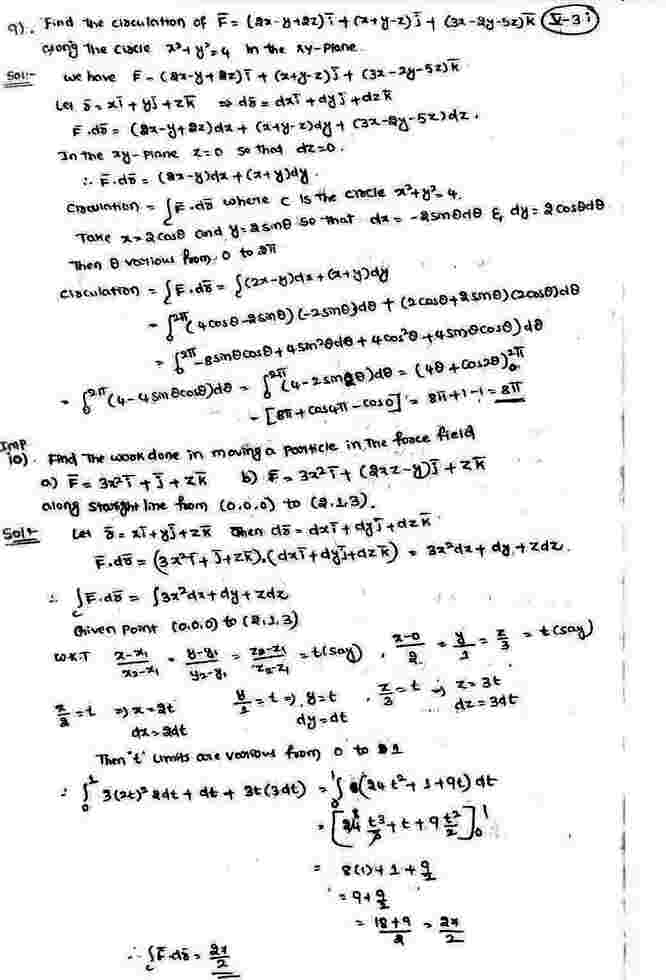 9). Find the circulation of F̅ = (2x-y+2z)i̅ + (x+y-z)j̅ + (3x-2y-5z)k̅ V-3i
along the circle x²+y²=4 in the xy-plane.
Sol:- we have F̅ = (2x-y+2z)i̅ + (x+y-z)j̅ + (3x-2y-5z)k̅
Let r̅ = xi̅ + yj̅ + zk̅ ⇒ dr̅ = dxi̅ + dyj̅ + dzk̅
F̅.dr̅ = (2x-y+2z)dx + (x+y-z)dy + (3x-2y-5z)dz.
In the xy-plane z=0 so that dz=0.
∴ F̅.dr̅ = (2x-y)dx + (x+y)dy.
Circulation = ∫_C F̅.dr̅ where c is the circle x²+y²=4.
Take x=2cosθ and y=2sinθ so that dx = -2sinθdθ & dy=2cosθdθ
Then θ various from 0 to 2π
Circulation = ∫_C F̅.dr̅ = ∫_C (2x-y)dx + (x+y)dy
= ∫₀^2π (4cosθ-2sinθ)(-2sinθ)dθ + (2cosθ+2sinθ)(2cosθ)dθ
= ∫₀^2π -8sinθcosθ + 4sin²θdθ + 4cos²θ + 4sinθcosθ) dθ
= ∫₀^2π (4-4sinθcosθ)dθ = ∫₀^2π (4-2sin2θ)dθ = (4θ+cos2θ)₀^2π
= [8π + cos4π - cos0] = 8π+1-1 = 8π
Imp
10). Find the work done in moving a particle in the force field
a) F̅ = 3x²i̅ + j̅ + zk̅ b) F̅ = 3x²i̅ + (2xz-y)j̅ + zk̅
along straight line from (0,0,0) to (2,1,3).
Sol:- Let r̅ = xi̅ + yj̅ + zk̅ then dr̅ = dxi̅ + dyj̅ + dzk̅
F̅.dr̅ = (3x²i̅ + j̅ + zk̅).(dxi̅ + dyj̅ + dzk̅) = 3x²dx + dy + zdz.
∴ ∫_C F̅.dr̅ = ∫3x²dx + dy + zdz
Given point (0,0,0) to (2,1,3)
W.K.T (x-x₁)/(x₂-x₁) = (y-y₁)/(y₂-y₁) = (z₂-z₁)/(z₂-z₁) = t(say), (x-0)/2 = y/1 = z/3 = t(say)
x/2 = t ⇒ x=2t y/1 = t ⇒ y=t, z/3 = t ⇒ z=3t
dx=2dt dy=dt dz=3dt
Then "t" limits are various from 0 to 1
∴ ∫₀¹ 3(2t)² 2dt + dt + 3t(3dt) = ∫₀¹ (24t²+1+9t) dt
= [24 t³/3 + t + 9 t²/2]₀¹
= 8(1)+1+9/2
= 9+9/2
= (18+9)/2 = 27/2
∴ ∫_C F̅.dr̅ = 27/2